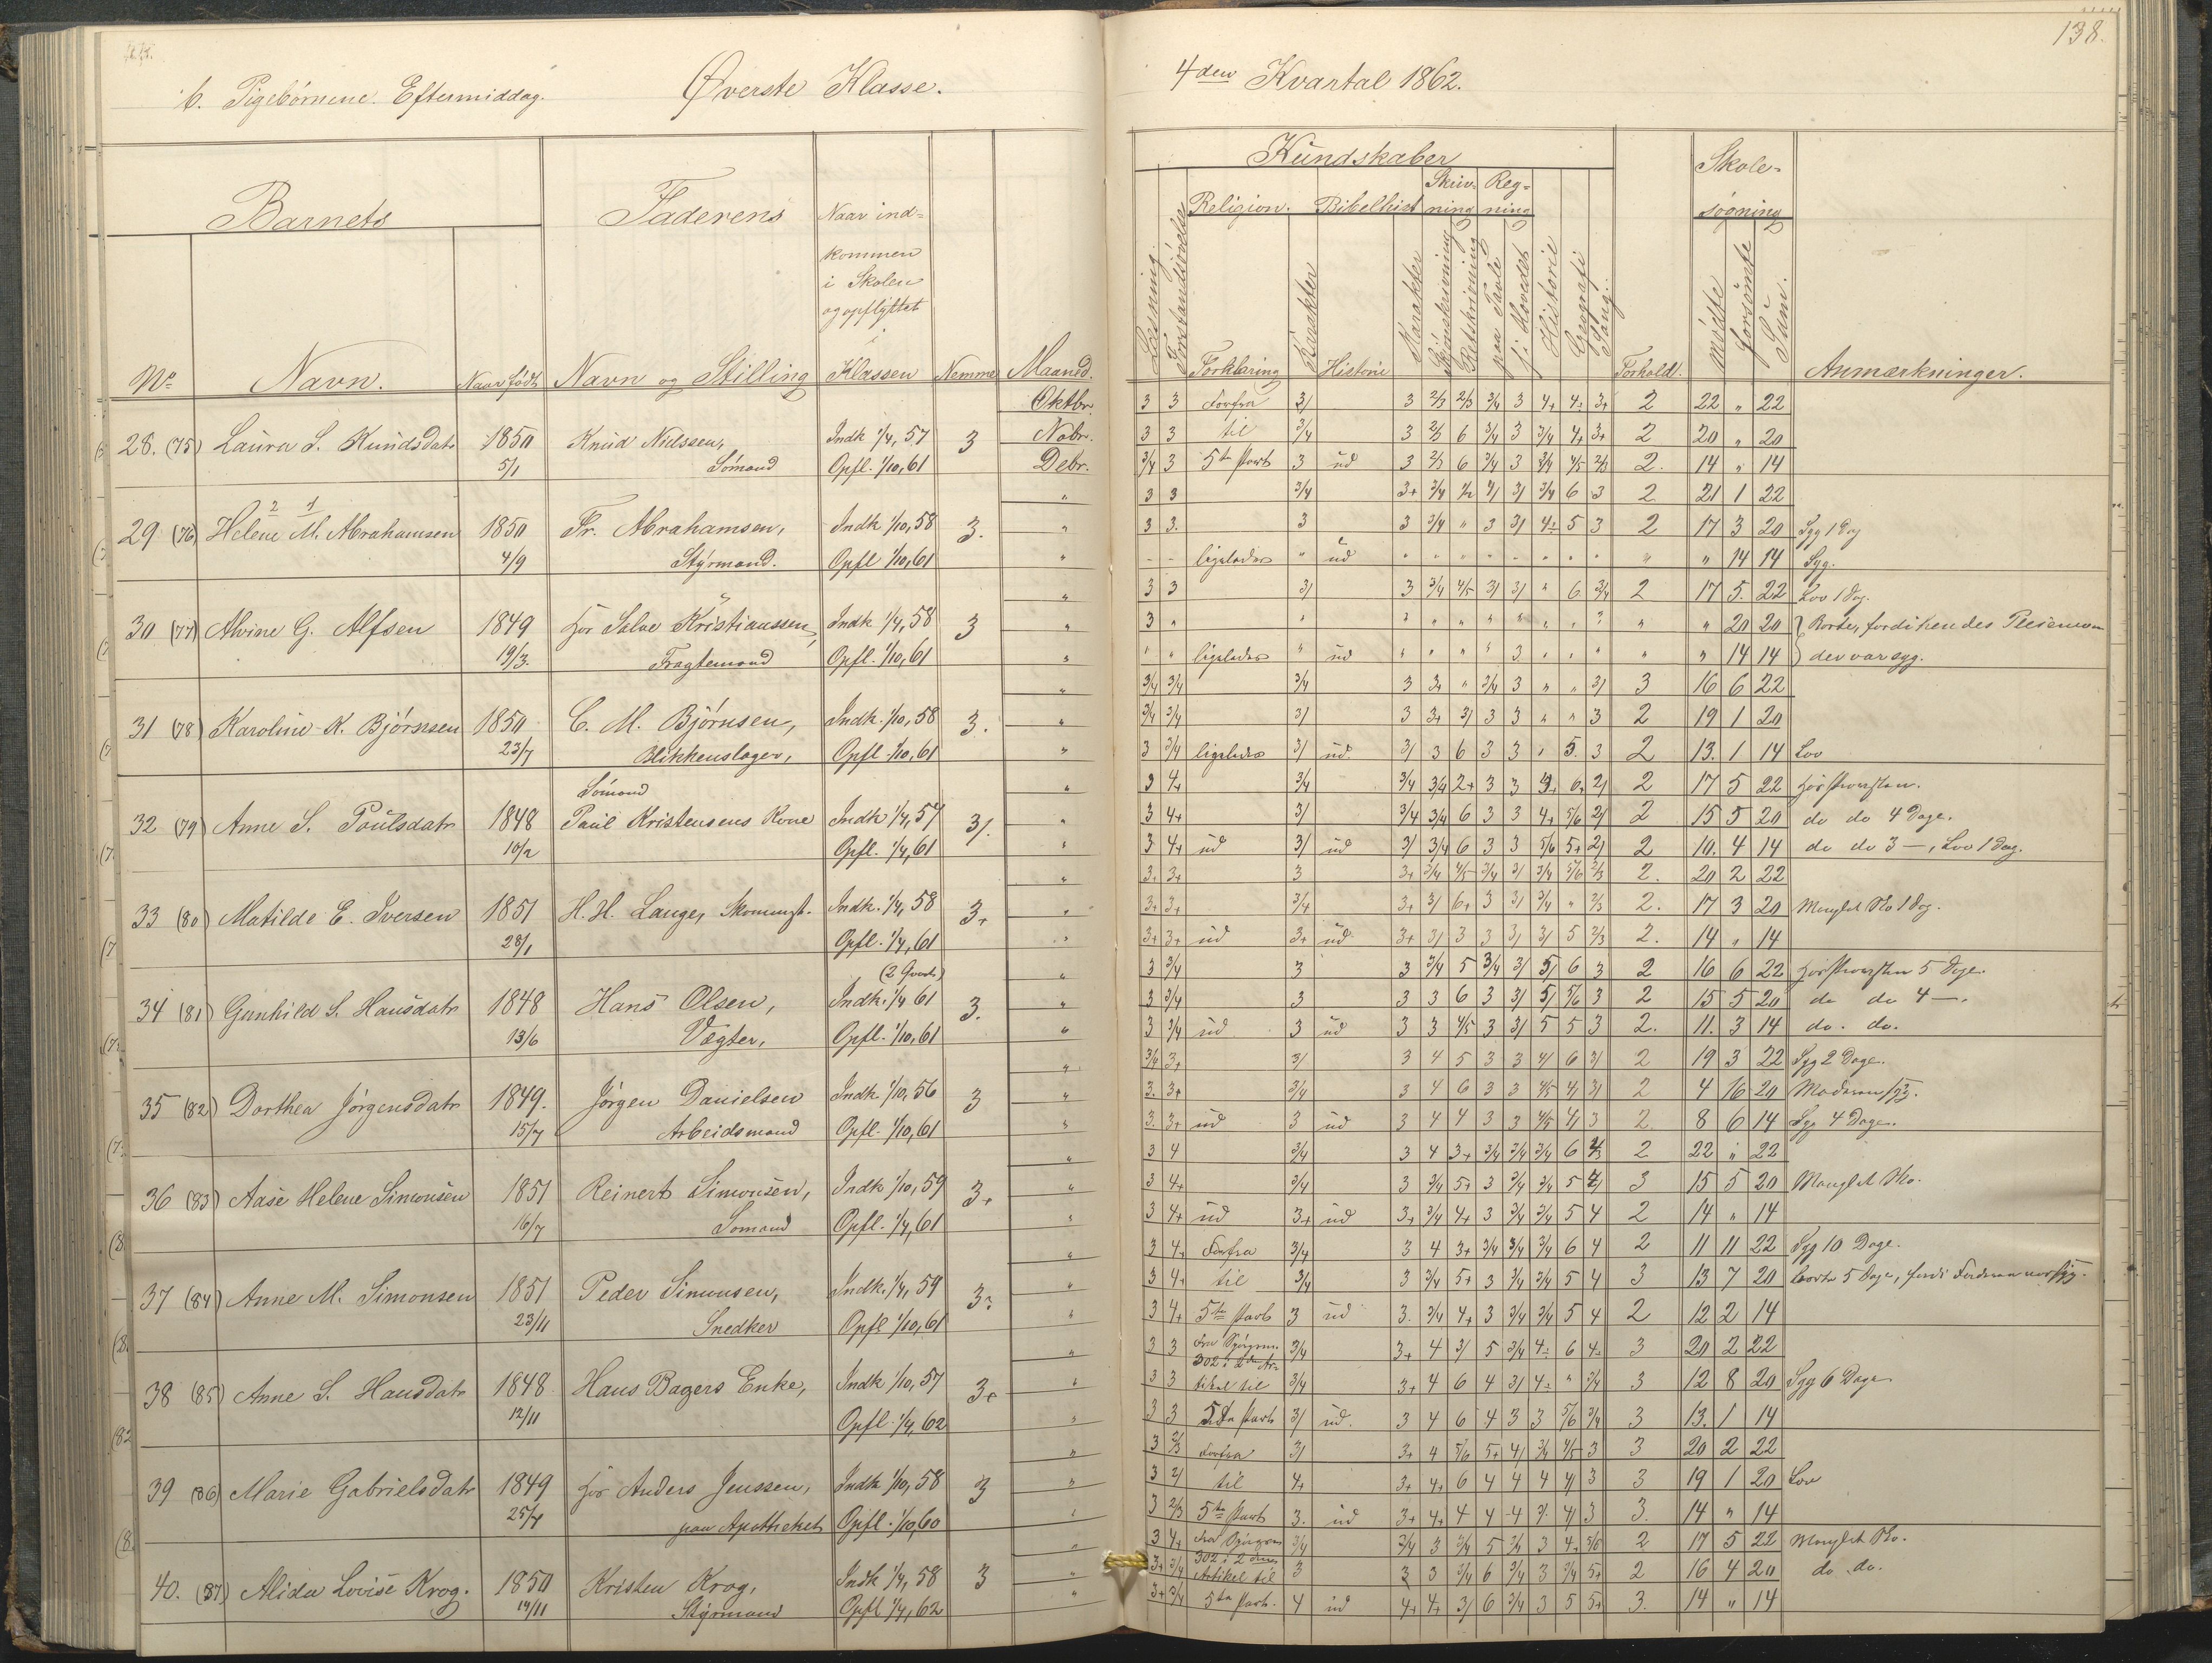 6. Pigebørnene. Eftermiddag. Øverste Klasse.
Barnets
Faderens
Naar ind-
kommen
i Skolen
og opflyttet
i
No Navn. Naar født Navn og Stilling Klassen Nemme Maaned.
Oktbr.
28. (75) Laura S. Knudsdatr 1850 Knud Nielssen, Indk 1/4, 57 3 Nobr.
5/1 Sømand Opfl. 1/10, 61 Debr.
29 (76) Helene M. Abrahamsen 1850 Fr. Abrahamsen, Indk 1/10, 58 3.
4/9 Styrmand. Opfl 1/10, 61
30 (77) Alvine G. Alfsen 1849 hos Salve Kristianssen, Indk 1/4, 58 3
19/3. Fragtemand Opfl. 1/10, 61
31 (78) Karoline K. Bjørnsen 1850 C. M. Bjørnsen, Indk 1/10, 58 3.
23/7 Blikkenslager, Opfl. 1/10, 61
Sømand
32 (79) Anne S. Paulsdatr 1848 Paul Kristensens Kone Indk 1/4, 57 3/.
10/2 Opfl. 1/4, 61
33 (80) Matilde E. Iversen 1851 H. H. Lange, Indk. 1/4, 58 3+
28/1 Opfl. 1/4, 61
34 (81) Gunhild S. Hansdatr 1848 Hans Olsen, Indk. 1/4 61 3.
13/6 Vægter, Opfl. 1/10, 61
35 (82) Dorthea Jørgensdatr 1849. Jørgen Danielsen Indk 1/10, 56 3
15/7 Arbeidsmand Opfl. 1/10, 61
36 (83) Aase Helene Simonsen 1851 Reinert Simonsen, Indk 1/10, 59 3+
16/7 Sømand Opfl. 1/4, 61
37 (84) Anne M. Simonsen 1851 Peder Simonsen, Indk. 1/4, 59
23/11 Snedker Opfl 1/10, 61
38 (85) Anne S. Hansdatr 1848 Hans Bagers Enke, Indk 1/10, 57 3+
12/11 Opfl. 1/4, 62
39 (86) Marie Gabrielsdatr 1849 hos Anders Jenssen, Indk 1/10, 58 3
paa Apotheket Opfl. 1/10, 60
40. (87) Alida Lovise Krog. 1850 Kristen Krog, Indk 1/4, 58 3
14/11 Styrmand Opfl 1/4, 62
138.
4den Kvartal 1862.
Kundskaber
Skole-
søgning
Religion. Bibelhist Skriv-ning Reg-ning
Læsning.
Forstandsøvelse
Forklaring
Karakter
Historie
Karakter
Skjønskrivning
Retskrivning
paa Tavle
i Hovedet
Historie
Geografi
Sang.
Forhold.
mødte
forsømte
Sum.
Anmærkninger.
3 3 Forfra 3/ 3 2/3 2/3 3/4 3 2 22 " 22
3 3 til 3/4 3 2/3 6 3/4 3 3/4 2 20 " 20
3/4 3 5te Part 3 ud 3 2/3 6 3/4 3 3/4 4/5 2/3 2. 14 " 14
3 3 3/4 3+ 3/4 6 3 2 21 1 22
3 3. 3 3 3/4 " 3 3/ 5 3 2 17 3 20 Syg 1 Dag
ligeledes " ud " 14 14 Syg.
3 3 3/ 3 3/4 4/5 3/ 3/ " 6 3/4 2 17 5. 22 Lov 1 Dag.
3 " " 20 20 Borte, fordi hendes
ligeledes " ud " 14 14 der var syg.
3/4 3/4 3/4 3 3+ " 3/4 3 " " 3/ 3 16 6 22
3/4 3/4 3/ 3 3+ 3/ 3 3 " " 3 2 19 1 20
3 3/4 ligeledes 3/ ud. 3/ 3 6 3 3 " 5. 3 2 13. 1 14 Lov
3 4+ 3/4 3/4 3/4 2+ 3 3 2 17 5 22
3 4+ 3/ 3/4 3/4 6 3 3 4+ 5/6 2/ 2 15 5 20 do do 4 Dage.
3 4+ ud 3/ ud 3/ 3/4 6 3 3 5/6 5+ 2/ 2 10. 4 14 do do 3 —, Lov 1 Dag.
3+ 3+ 3 3+ 3/4 4/5 3/4 3/ 3/4 5/6 2/3 2. 20 2 22
3+ 3+ 3/4 3+ 3/ 6+ 3 3/ 3/4 " 2/3 2. 17 3 20 Manglet Sko 1 Dag.
3+ 3+ ud 3+ ud 3+ 3/ 3 3 3/ 3/ 5 2/3 2. 14 " 14
3 3/4 3 3 3/4 5 3/4 3/ 5/ 6 3 2 16 6 22
3 3/4 3 3 3 6 3 3/ 5/ 5/6 3 2 15 5 20 do do 4 —.
3 3/4 ud 3 ud 3 3 4/5 3 3/ 5 5 3 2. 11. 3 14 do. do.
3/4 3+ 3/ 3 4 5 3 3 4/ 6 3/ 2 19 3 22 Syg 2 Dage.
3. 3+ 3/4 3 4 6 3 3 4/5 4/ 3/ 2 4 16 20 Moderen syg.
3. 3+ ud 3 ud 3 4 4 3 3 4/5 4/ 3 2 8 6 14 Syg 4 Dage.
3 4 3/4 3 4 3+ 3/4 3/4 3/4 6 2 22 " 22
3 4+ 3/4 3 3/4 5+ 3 3/4 3/4 5 3 15 5 20 Manglet Sko.
3 4+ ud 3+ ud 3+ 3/4 4+ 3 3/4 3/4 5 4 2 14 " 14
3 4+ Forfra 3/4 3 4 3+ 3/4 3/4 3/4 6 4 2 11 11 22 Syg 10 Dage.
3 4+ til 3/4 3 3/4 5+ 3 3/4 3/4 5 4 3 13 7 20 borte 5 Dage, fordi syg.
3 4+ 5te Part 3 ud 3. 3/4 4+ 3 3/4 3/4 5 4 2 12 2 14
3 3 Fra Spørgsm. 302 i 2den Ar- 3/4 3+ 4 3/ 5 3/4 6 3 20 2 22
3 3 tikel til 3/4 3+ 4 6 4 3/ " 3/4 3 12 8 20 Syg 6 Dage
3 3 5te Part 3/ ud. 3 4 6 4 3 3 5/6 3/4 3 13. 1 14
3 2/3 Forfra 3/ 3+ 4 5/6 5+ 4/ 3/4 4/5 3 3 20 2 22
3 2/ til 4+ 3+ 4+ 6 4 4 4 4/ 3 3 19 1 20 Lov
3 2/3 5te Part 3. ud 3+ 4+ 4 4 4 4/ 3 3. 14 " 14
3 4+ Fra Spørgsm 3/4 3/4 3 3/4 5 3/4 3 4+ 5/6 2 17 5 22 Manglet Sko.
3+ 3/4 302 i 2 den Artikel til 3 3 3 3/4 6 3/4 3 3/4 5+ 2 16 4 20 do. do.
3+ 3/4 5te Part. 4 ud 4+ 4+ 3/ 6 3/4 3 5 5+ 3. 14 " 14